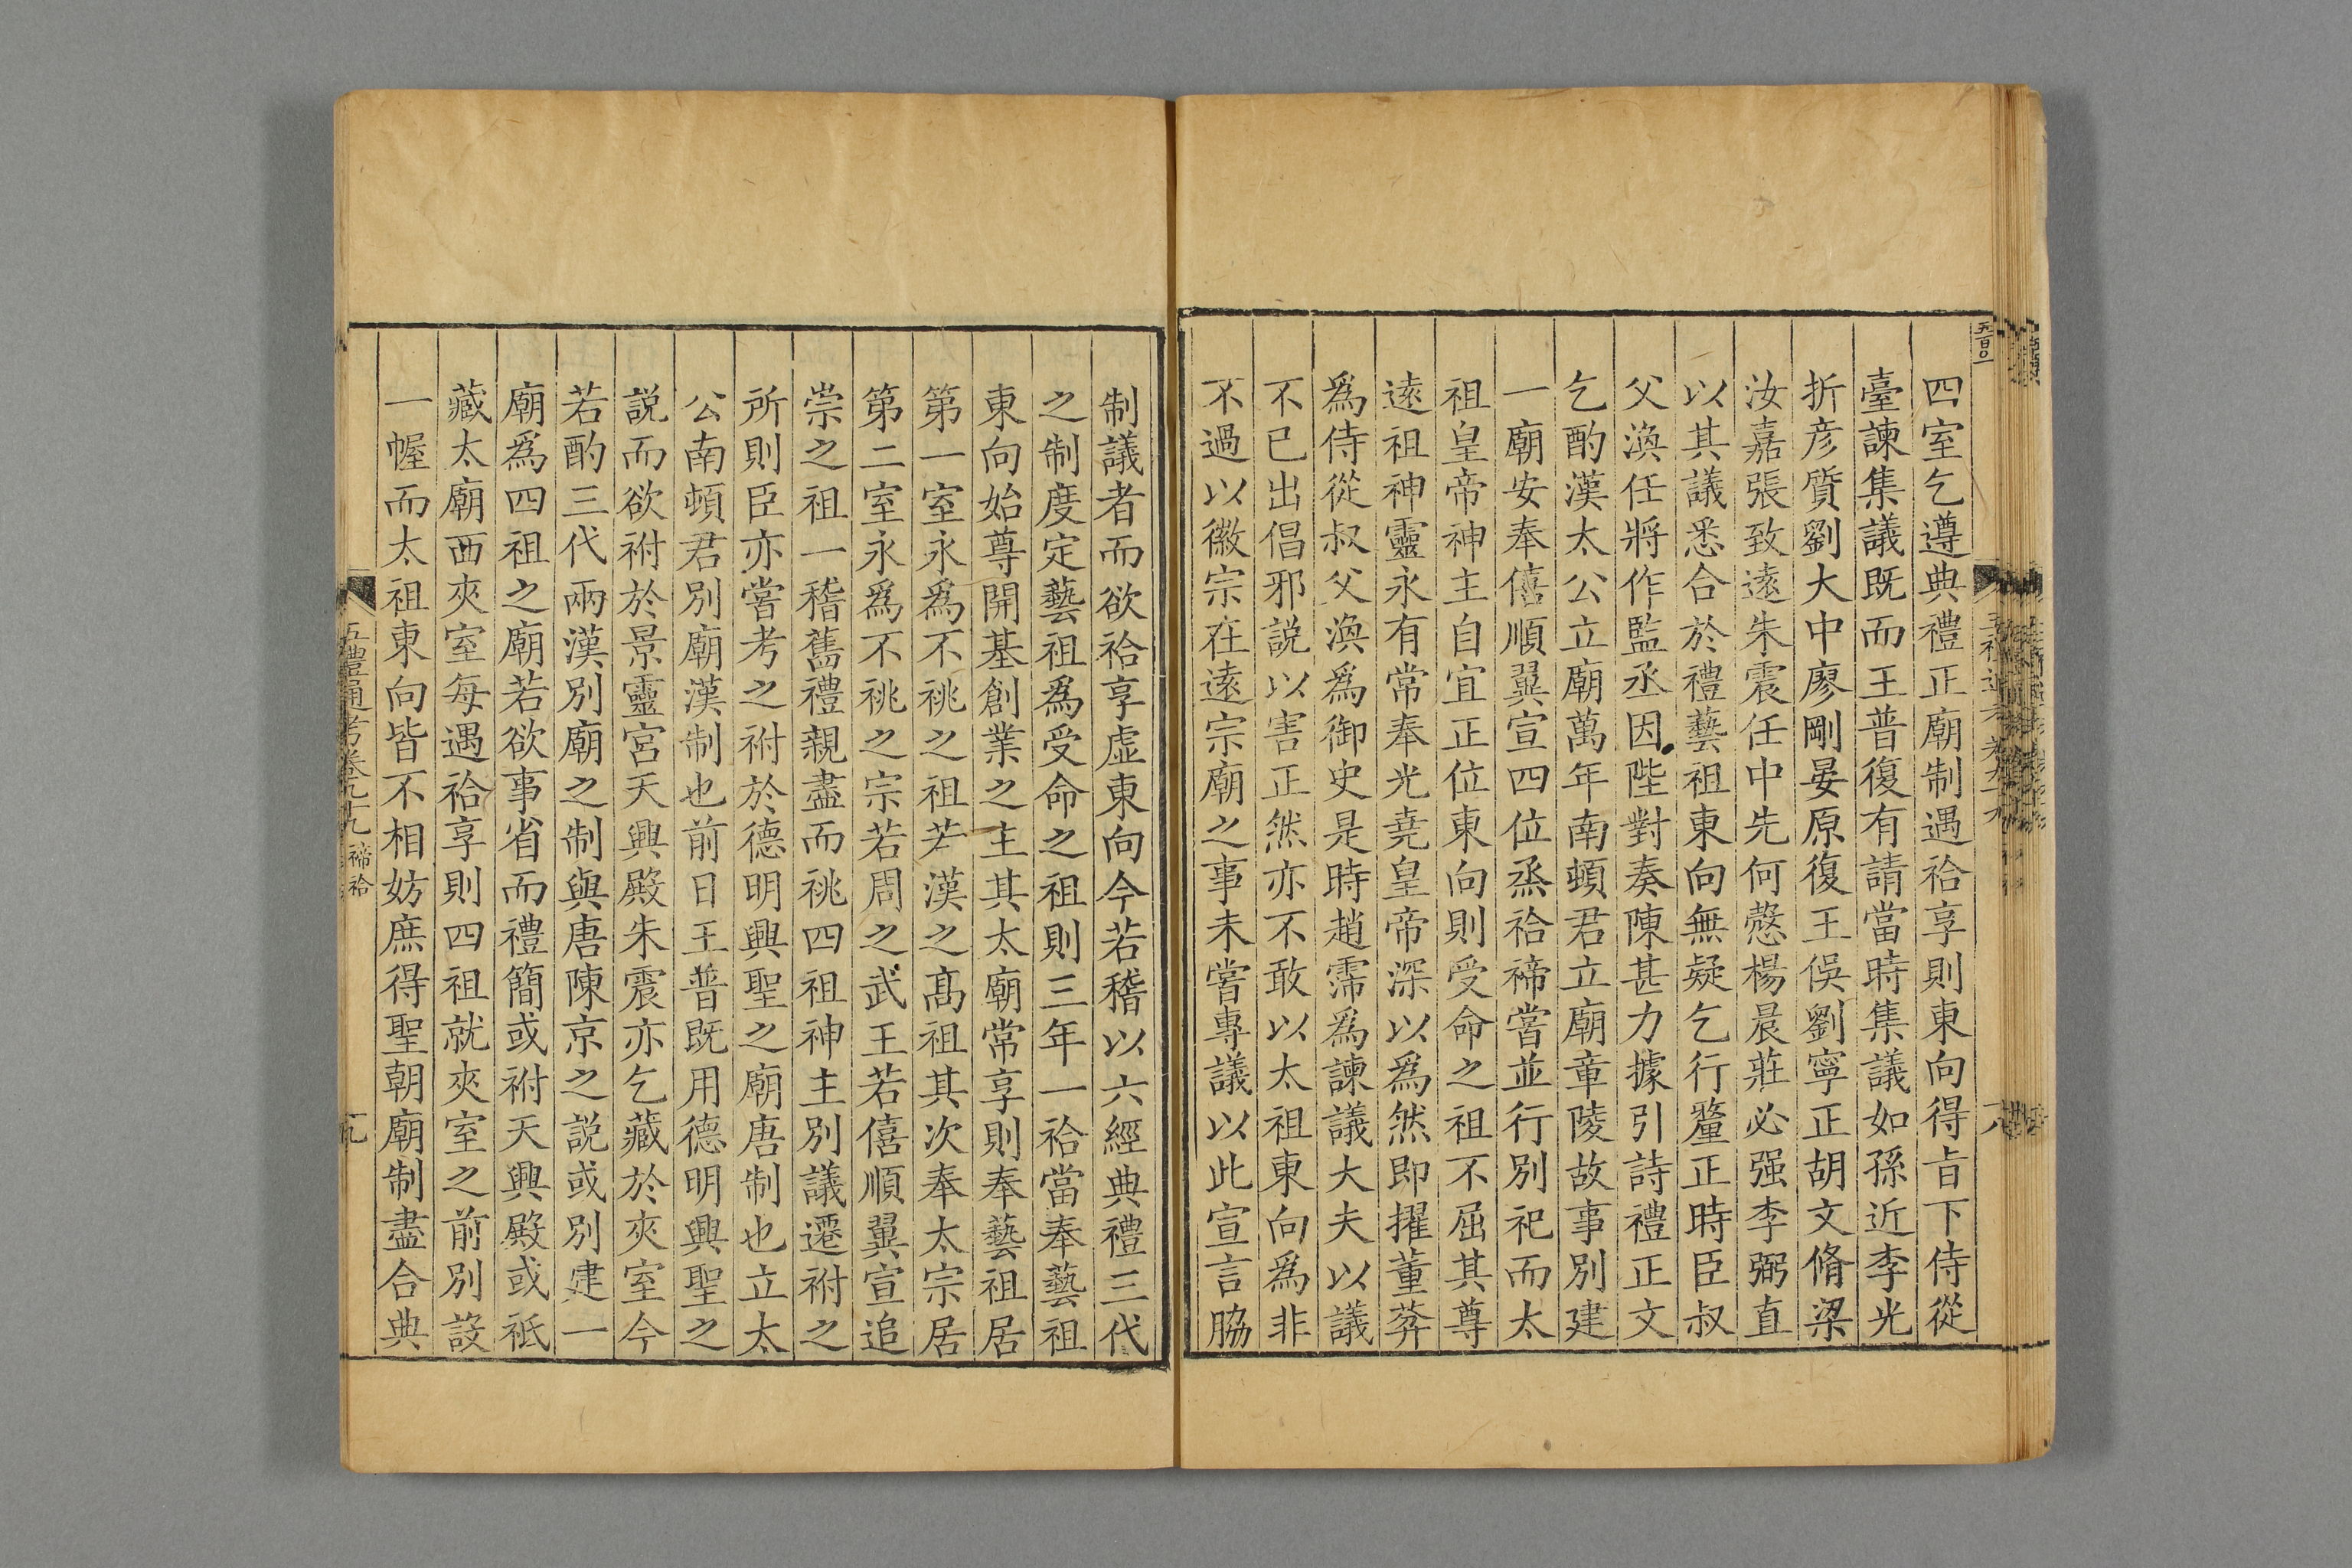 五百〇一
四室乞遵典禮正廟制遇祫享則東向得㫖下侍從
臺諫集議既而王普復有請當時集議如孫近李光
折彦質劉大中廖剛晏原復王俁劉寧正胡文脩梁
汝嘉張致逺朱震任中先何慤楊晨莊必强李弼直
以其議悉合於禮藝祖東向無疑乞行釐正時臣叔
父渙任將作監丞因陛對奏陳甚力據引詩禮正文
乞酌漢太公立廟萬年南頓君立廟章陵故事別建
一廟安奉僖順翼宣四位烝祫禘嘗並行別祀而太
祖皇帝神主自宜正位東向則受命之祖不屈其尊
逺祖神靈永有常奉光堯皇帝深以爲然即擢董弅
爲侍從叔父渙爲御史是時趙霈爲諫議大夫以議
不已出倡邪説以害正然亦不敢以太祖東向爲非
不過以徽宗在逺宗廟之事未嘗專議以此宣言脇
制議者而欲祫享虛東向今若稽以六經典禮三代
之制度定藝祖爲受命之祖則三年一祫當奉藝祖
東向始尊開基創業之主其太廟常享則奉藝祖居
第一室永爲不祧之祖若漢之髙祖其次奉太宗居
第二室永爲不祧之宗若周之武王若僖順翼宣追
崇之祖一稽舊禮親盡而祧四祖神主別議遷祔之
所則臣亦嘗考之祔於德明興聖之廟唐制也立太
公南頓君別廟漢制也前日王普既用德明興聖之
説而欲祔於景靈宮天興殿朱震亦乞藏於夾室今
若酌三代兩漢別廟之制與唐陳京之説或別建一
廟爲四祖之廟若欲事省而禮簡或祔天興殿或祗
藏太廟西夾室每遇祫享則四祖就夾室之前別設
一幄而太祖東向皆不相妨庶得聖朝廟制盡合典
五禮通考卷九十九 禘祫
十九